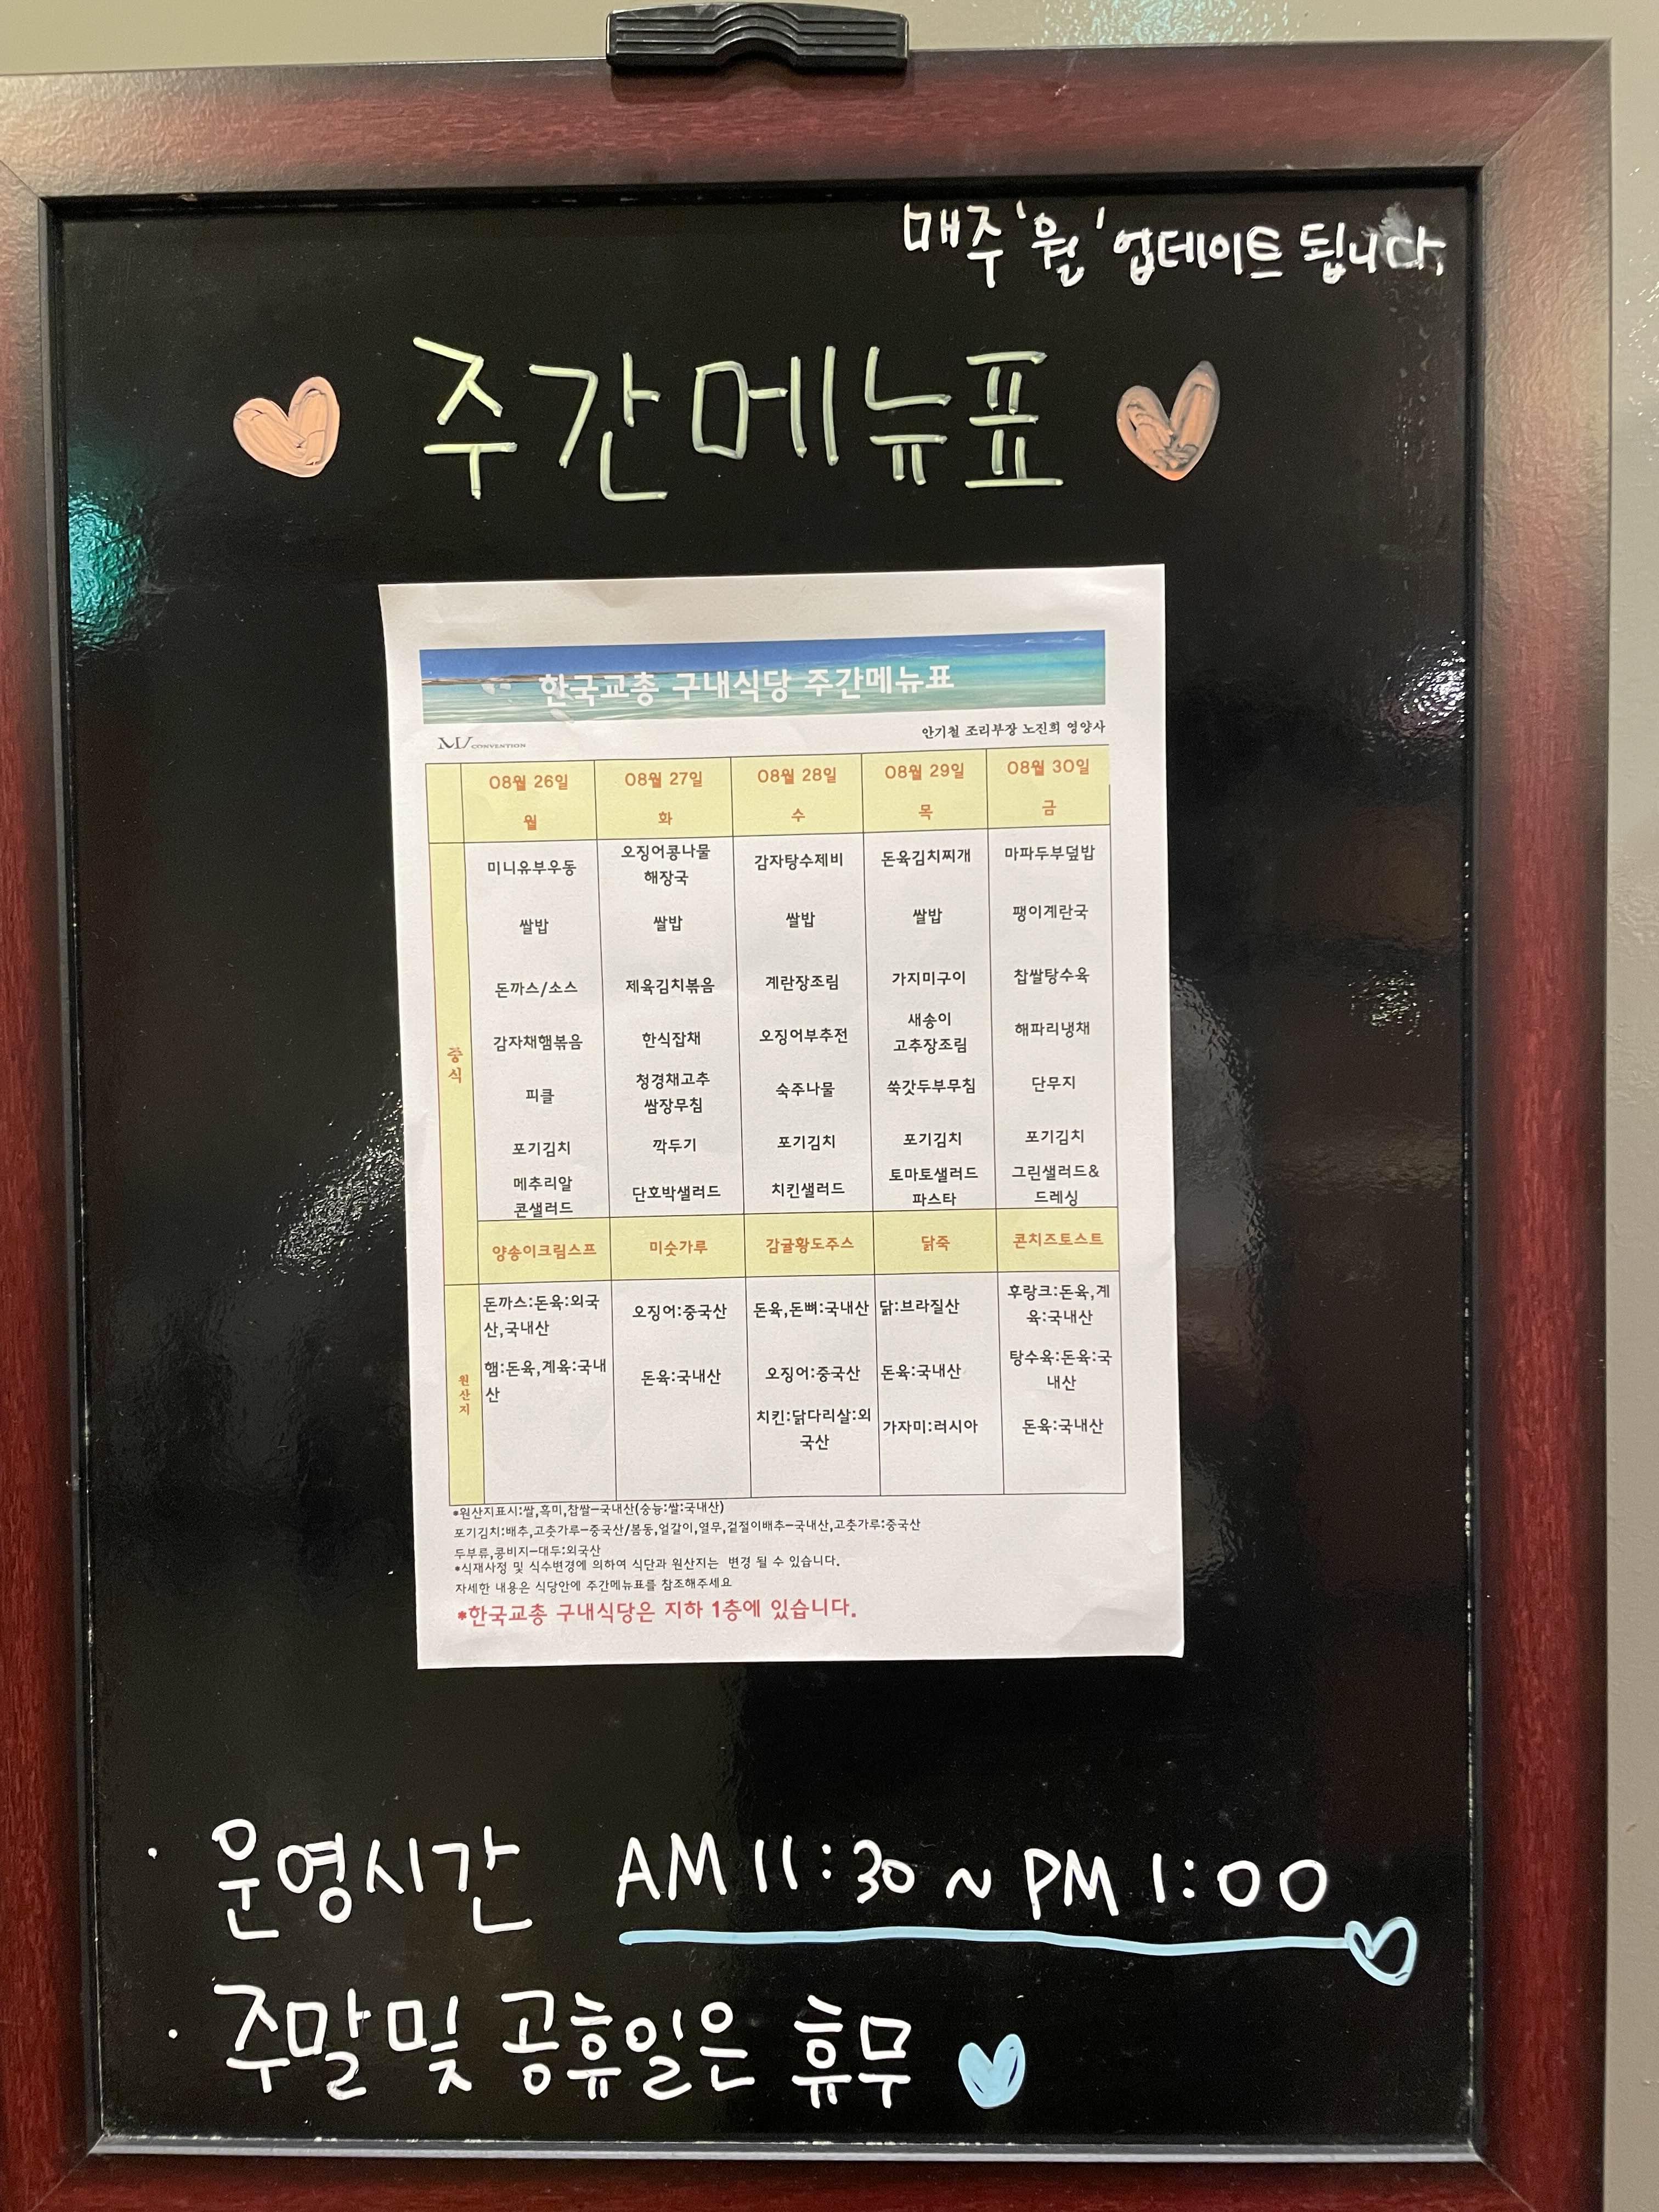 매주 '월' 업데이트 됩니다.
주간메뉴표
한국교총 구내식당 주간메뉴표
MV CONVENTION
안기철 조리부장 노진희 영양사
08월 26일 08월 27일 08월 28일 08월 29일 08월 30일
월 화 수 목 금
중식
미니유부우동
쌀밥
돈까스/소스
감자채햄볶음
피클
포기김치
메추리알
콘샐러드
양송이크림스프
오징어콩나물
해장국
쌀밥
제육김치볶음
한식잡채
청경채고추
쌈장무침
깍두기
단호박샐러드
미숫가루
감자탕수제비
쌀밥
계란장조림
오징어부추전
숙주나물
포기김치
치킨샐러드
감귤황도주스
돈육김치찌개
쌀밥
가지미구이
새송이
고추장조림
쑥갓두부무침
포기김치
토마토샐러드
파스타
닭죽
마파두부덮밥
팽이계란국
찹쌀탕수육
해파리냉채
단무지
포기김치
그린샐러드&
드레싱
콘치즈토스트
원산지
돈까스:돈육:외국
산,국내산
햄:돈육,계육:국내
산
오징어:중국산
돈육:국내산
돈육,돈뼈:국내산
오징어:중국산
치킨:닭다리살:외
국산
닭:브라질산
돈육:국내산
가자미:러시아
후랑크:돈육,계
육:국내산
탕수육:돈육:국
내산
돈육:국내산
*원산지표시:쌀,흑미,찹쌀-국내산(숭늉:쌀:국내산)
포기김치:배추,고춧가루-중국산/봄동,얼갈이,열무,겉절이배추-국내산,고춧가루:중국산
두부류,콩비지-대두:외국산
*식재사정 및 식수변경에 의하여 식단과 원산지는 변경 될 수 있습니다.
자세한 내용은 식당안에 주간메뉴표를 참조해주세요
*한국교총 구내식당은 지하 1층에 있습니다.
· 운영시간 AM 11:30 ~ PM 1:00
· 주말 및 공휴일은 휴무